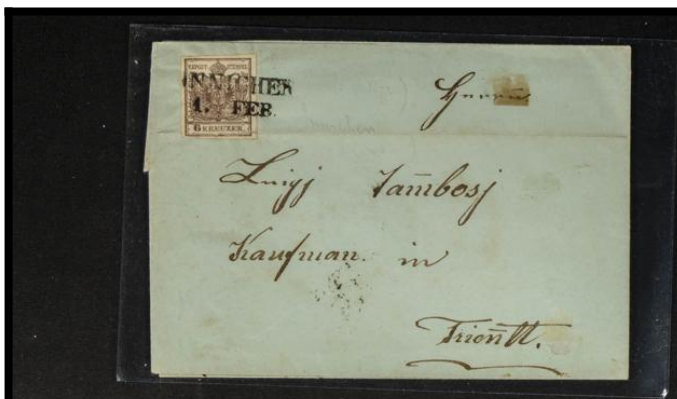 INNICHEN
1. FEB.
6 KREUZER
Herrn
Luigj Tam̄bosj
Kaufman in
Trien̄tt.